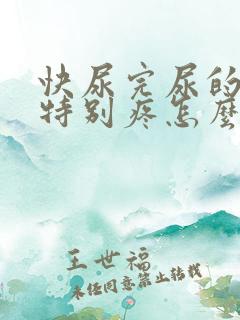 快尿完尿的
特别疼怎麼
王世福
未经同意禁止转载